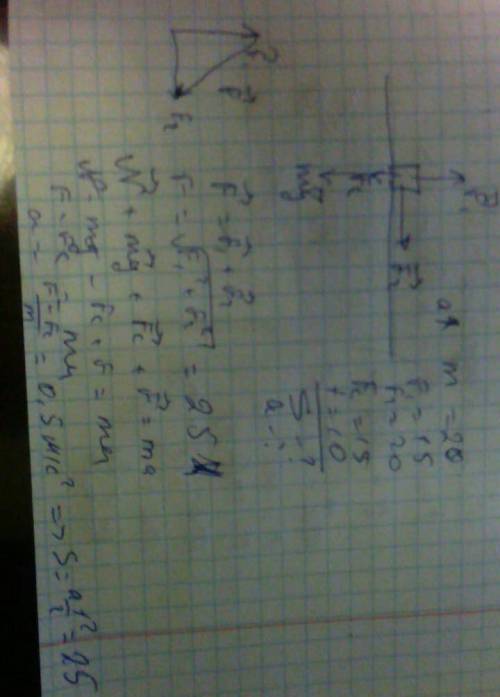 m = 20
F₁ = 15
F₂ = 20
Fc = 15
t = 10
S - ?
a - ?
F₁
F₂
Fc
mg
F₂
F
F = F₁ + F₂
F = √F₁² + F₂² = 25 Н
N + mg + Fc + F = ma
N - mg - Fc + F = ma
F - Fc = ma
a = F - Fc / m = 0,5 м/с² => S = at² / 2 = 25